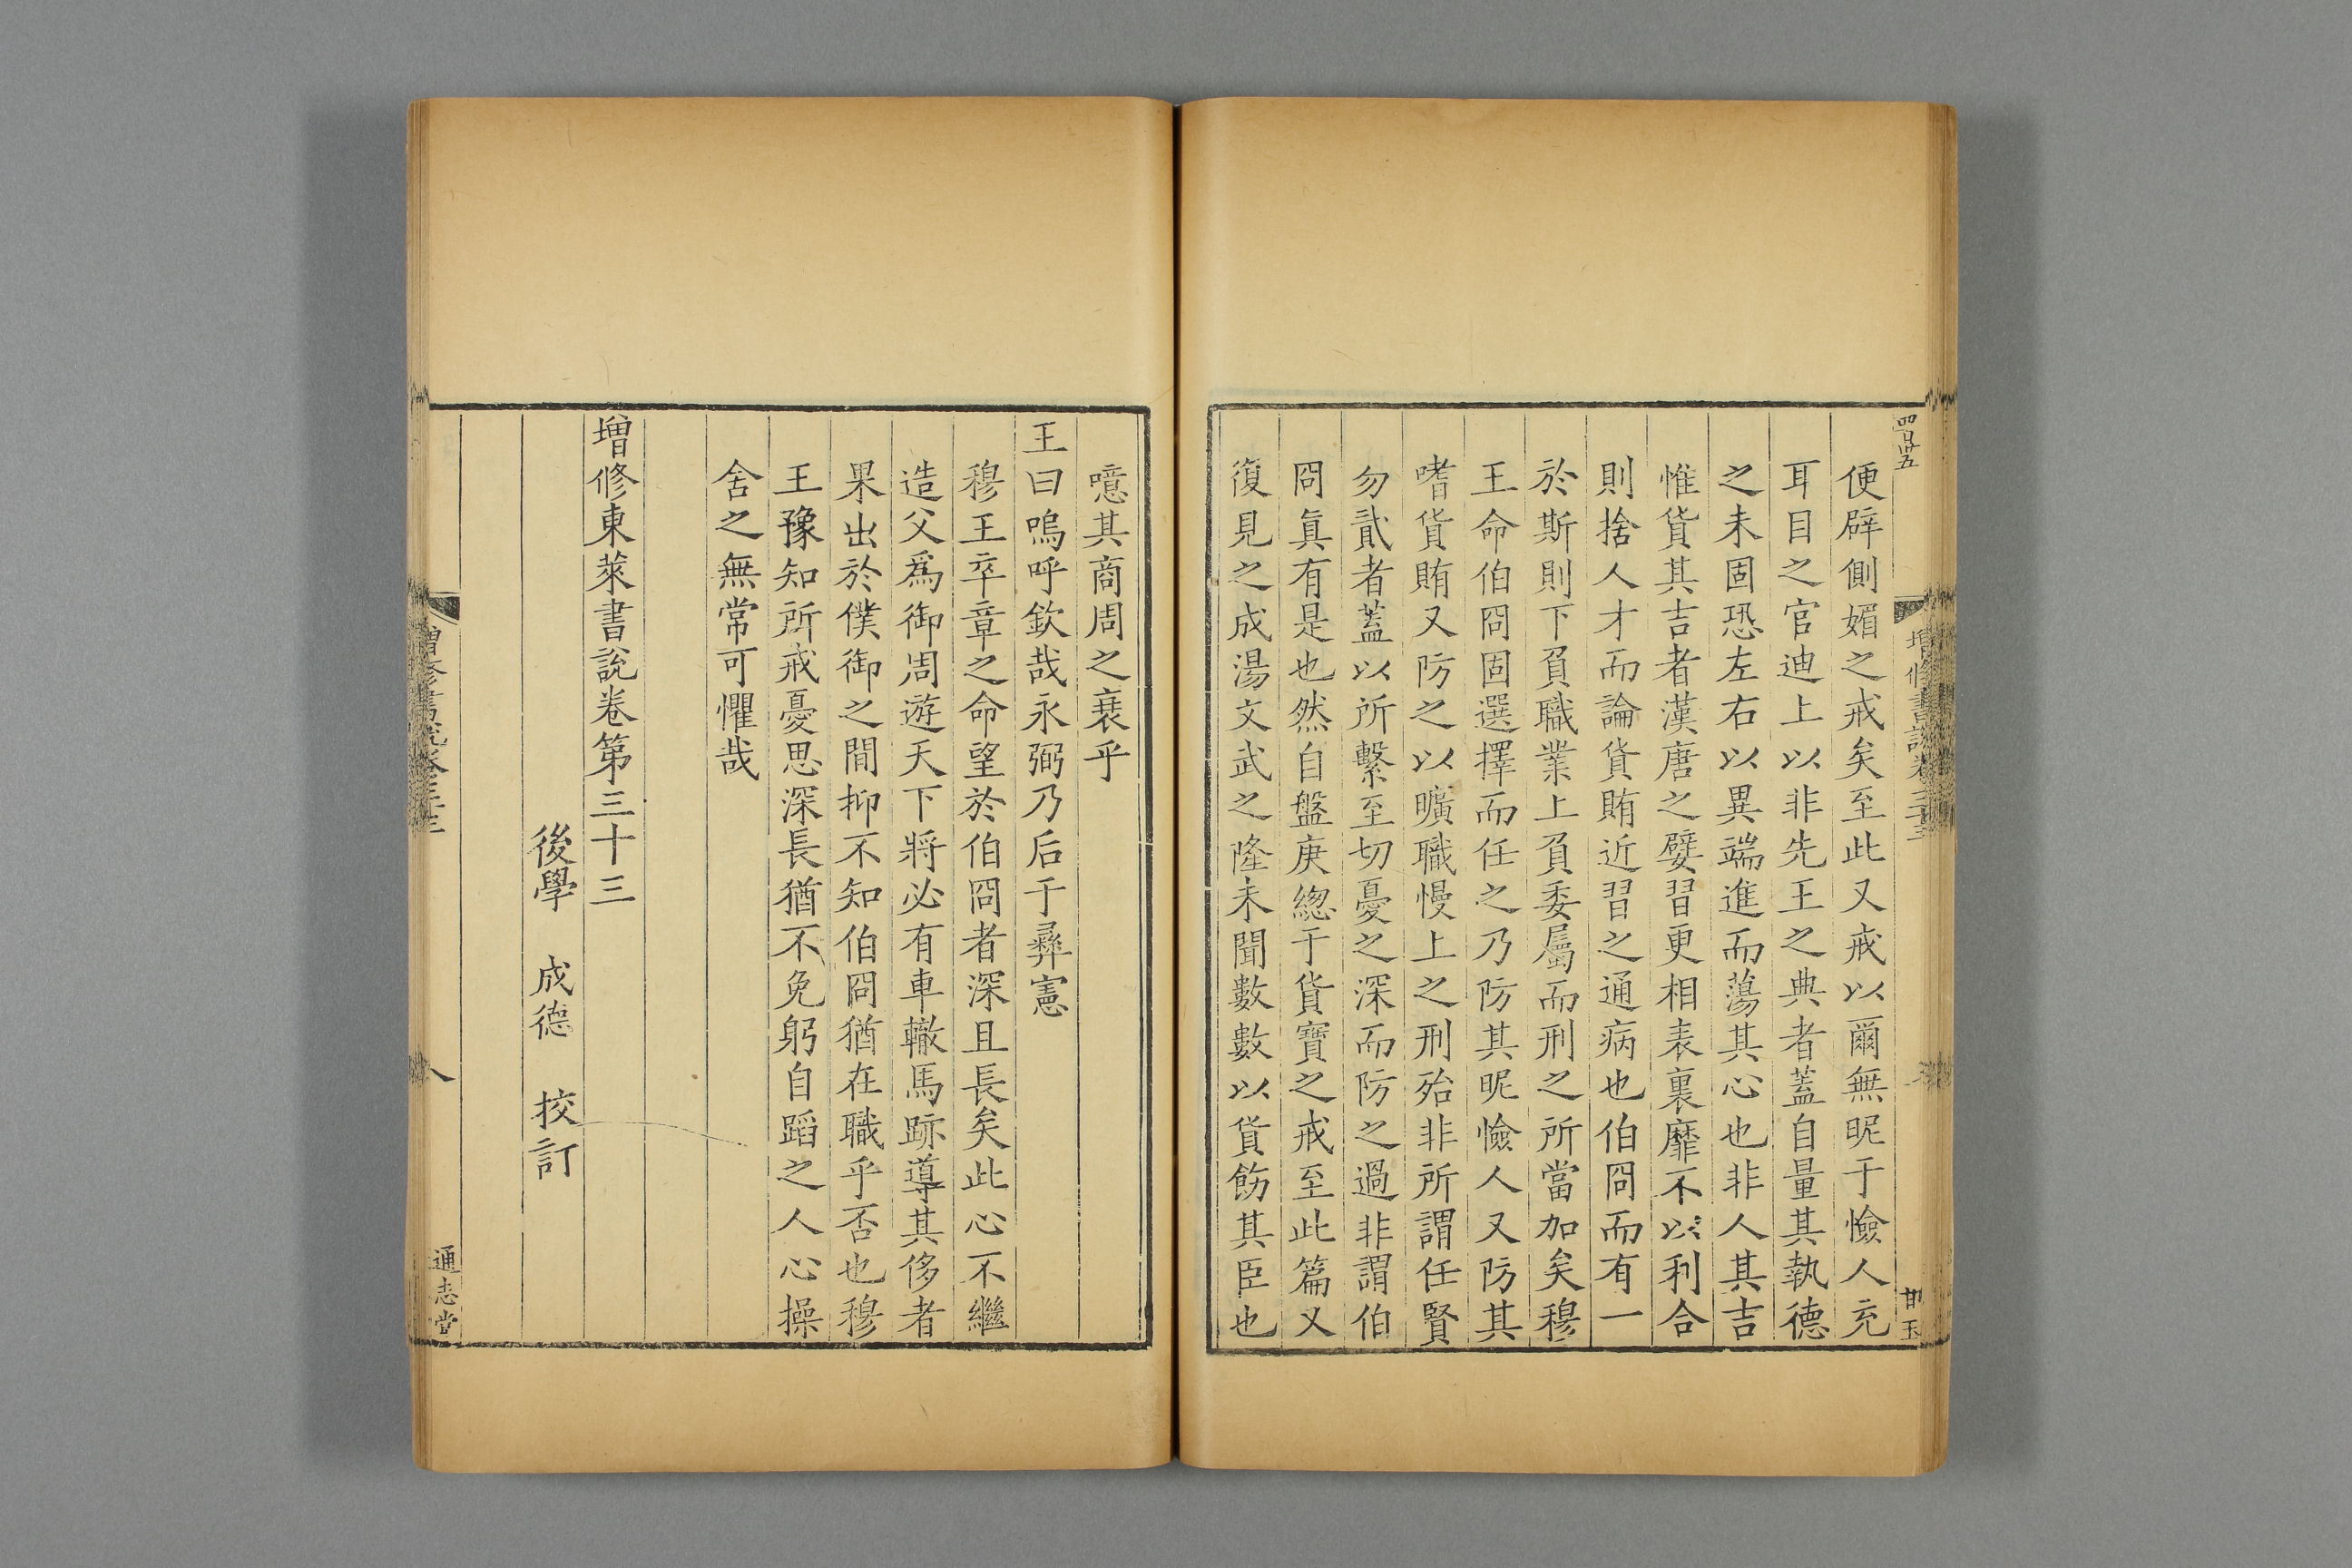 四百廿五
增修書說卷三十三
甘玉
便辟側媚之戒矣至此又戒以爾無昵于憸人充
耳目之官迪上以非先王之典者蓋自量其執德
之未固恐左右以異端進而蕩其心也非人其吉
惟貨其吉者漢唐之嬖習更相表裏靡不以利合
則捨人才而論貨賄近習之通病也伯冏而有一
於斯則下負職業上負委屬而刑之所當加矣穆
王命伯冏固選擇而任之乃防其昵憸人又防其
嗜貨賄又防之以曠職慢上之刑殆非所謂任賢
勿貳者蓋以所繫至切憂之深而防之過非謂伯
冏真有是也然自盤庚緫于貨寶之戒至此篇又
復見之成湯文武之隆未聞數數以貨飭其臣也
噫其商周之衰乎
王曰嗚呼欽哉永弼乃后于彝憲
穆王卒章之命望於伯冏者深且長矣此心不繼
造父爲御周遊天下將必有車轍馬跡導其侈者
果出於僕御之間抑不知伯冏猶在職乎否也穆
王豫知所戒憂思深長猶不免躬自蹈之人心操
舍之無常可懼哉
增修東萊書說卷第三十三
後學 成德 挍訂
增修書說卷三十三
八
通志堂